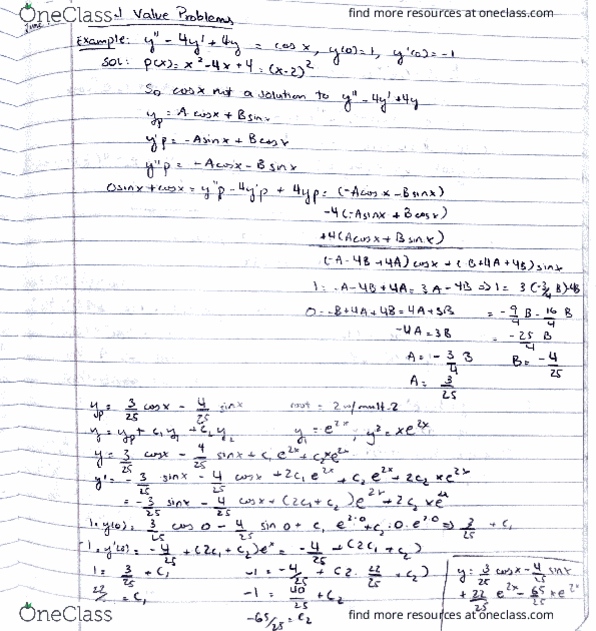 OneClass
find more resources at oneclass.com
June
Value Problems
Example: y" - 4y' + 4y = cos x, y(0)=1, y'(0)= -1
Sol: p(x)= x² -4x +4 = (x-2)²
So cosx not a solution to y" -4y' +4y
yp = A cosx + B sinx
y'p = -A sinx + B cosx
y"p = -A cosx - B sinx
0 sinx + cosx = y"p - 4y'p + 4yp = (-A cosx - B sinx)
-4(-A sinx + B cosx)
+4(A cosx + B sinx)
(-A -4B +4A) cosx + (-B+4A+4B) sinx
1 = -A -4B +4A = 3A -4B ⇒ 1 = 3(-3/4 B) -4B
0 = -B+4A+4B = 4A+3B = -9/4 B - 16/4 B
-4A = 3B = -25/4 B
A = -3/4 B B = -4/25
A = 3/25
yp = 3/25 cosx - 4/25 sinx root = 2 w/ mult. 2
y = yp + c₁y₁ + c₂y₂ y₁ = e^2x, y² = xe^2x
y = 3/25 cosx - 4/25 sinx + c₁e^2x + c₂xe^2x
y' = -3/25 sinx - 4/25 cosx + 2c₁e^2x + c₂e^2x + 2c₂xe^2x
= -3/25 sinx - 4/25 cosx + (2c₁+c₂)e^2x + 2c₂xe^2x
1 = y(0) = 3/25 cos 0 - 4/25 sin 0 + c₁ e^2·0 + c₂·0·e^2·0 ⇒ 3/25 + c₁
-1 = y'(0) = -4/25 + (2c₁+c₂)e^x = -4/25 + (2c₁+c₂)
1 = 3/25 + c₁ -1 = -4/25 + (2·22/25 + c₂) y = 3/25 cosx - 4/25 sinx
22/25 = c₁ -1 = 40/25 + c₂ + 22/25 e^2x - 65/25 xe^2x
-65/25 = c₂
OneClass
find more resources at oneclass.com